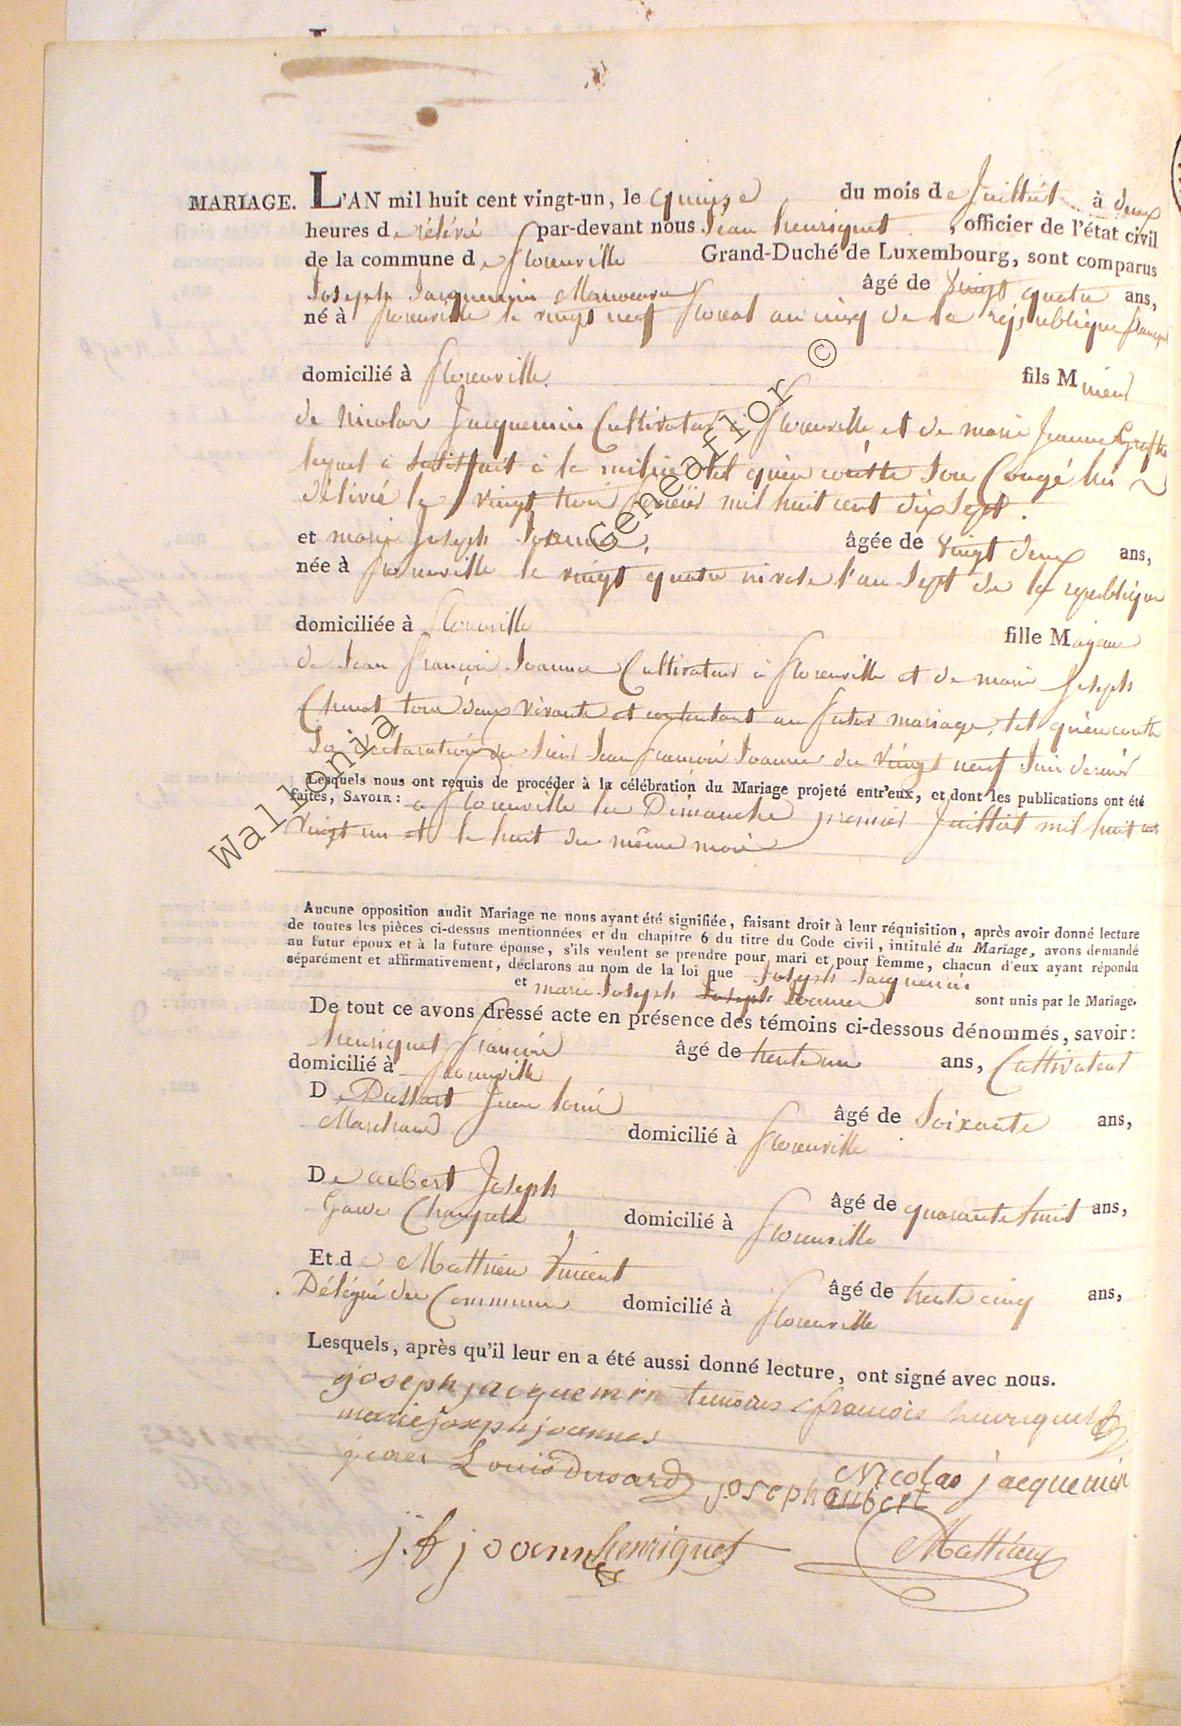 MARIAGE. L'AN mil huit cent vingt-un, le quinze du mois de Juillet à deux
heures de rélévé par-devant nous Jean henriquet, officier de l'état civil
de la commune de florenville Grand-Duché de Luxembourg, sont comparus
Joseph Jacquemin Manoeuvre âgé de vingt quatre ans,
né à florenville le vingt neuf floreal an cinq de la république français
domicilié à florenville. fils Mineur
de Nicolas Jacquemin Cultivateur à florenville et de marie Jeanne
lequel à satisfait à la milice tel qu'en conste son Congé lui
délivré le vingt trois mil huit cent dix sept.
et marie Joseph Joannes, âgée de vingt deux ans,
née à florenville le vingt quatre nivose l'an sept de la republique
domiciliée à florenville fille Majeure
de Jean françois Joannes Cultivateur à florenville et de marie Joseph
tous deux vivants et contentant au futur mariage, tel qu'en conste
la déclaration du sieur Jean françois Joannes du vingt neuf Juin dernier
Lesquels nous ont requis de procéder à la célébration du Mariage projeté entr'eux, et dont les publications ont été
faites, SAVOIR: à florenville les Dimanche premier Juillet mil huit cent
vingt un et le huit du même mois
Aucune opposition audit Mariage ne nous ayant été signifiée, faisant droit à leur réquisition, après avoir donné lecture
de toutes les pièces ci-dessus mentionnées et du chapitre 6 du titre du Code civil, intitulé du Mariage, avons demandé
au futur époux et à la future épouse, s'ils veulent se prendre pour mari et pour femme, chacun d'eux ayant répondu
séparément et affirmativement, déclarons au nom de la loi que Joseph Jacquemin
et marie Joseph Joseph Joannes sont unis par le Mariage.
De tout ce avons dressé acte en présence des témoins ci-dessous dénommés, savoir:
henriquet françois âgé de trente un ans, Cultivateur
domicilié à florenville
De Dussart Jean Louis âgé de soixante ans,
Marchand domicilié à florenville
De aubert Joseph âgé de quarante huit ans,
Garde Champetre domicilié à florenville
Et de Mathieu Vincent âgé de trente cinq ans,
Délégué des Communes domicilié à florenville
Lesquels, après qu'il leur en a été aussi donné lecture, ont signé avec nous.
joseph jacquemin temoins francois henriquet
marie joseph joannes
jean Louis dusard Nicolas jacquemin
joseph aubert
j. f joannes henriquet Mathieu
Wallonia Geneaflor ©